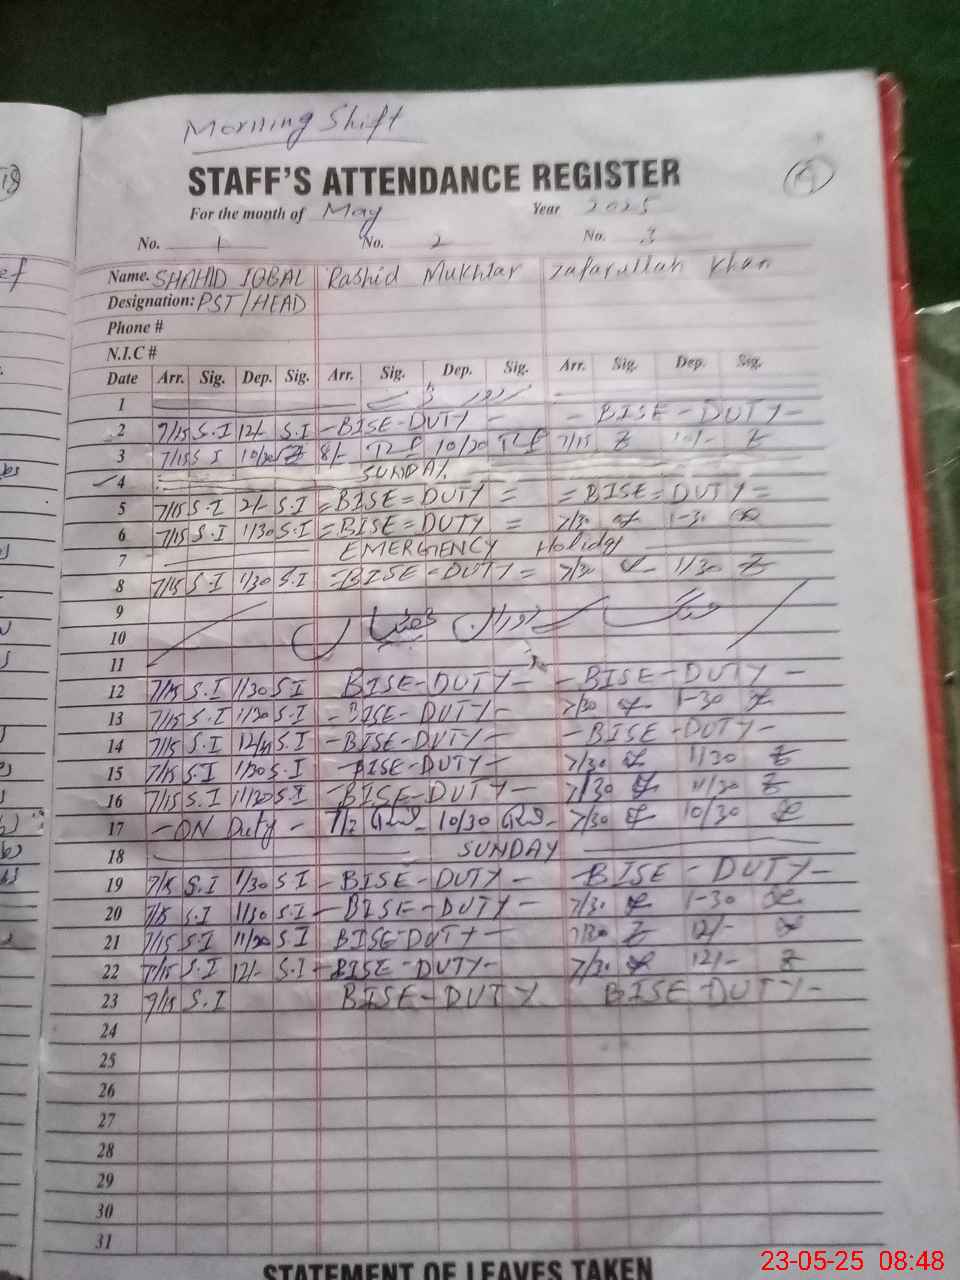 Morning Shift
STAFF'S ATTENDANCE REGISTER
For the month of May Year 2025
No. 1 No. 2 No. 3
Name. SHAHID IQBAL Rashid Mukhtar Zafarullah Khan
Designation: PST/HEAD
Phone #
N.I.C #
Date Arr. Sig. Dep. Sig. Arr. Sig. Dep. Sig. Arr. Sig. Dep. Sig.
1
2 7/15 S.I 12/- S.I - BISE-DUTY - - BISE-DUTY-
3 7/15 S I 10/20 8/- 10/20 7/15 10/-
4 SUNDAY
5 7/15 S.I 2/- S.I = BISE = DUTY = = BISE = DUTY =
6 7/15 S.I 1/30 S.I = BISE = DUTY = 7/30 1-30
7 EMERGENCY Holiday
8 7/15 S.I 1/30 S.I = BISE - DUTY = 7/30 1/30
9
10
11
12 7/15 S.I 1/30 S I BISE-DUTY - - BISE-DUTY -
13 7/15 S.I 1/30 S.I - BISE-DUTY- 7/30 1-30
14 7/15 S.I S.I -BISE-DUTY- -BISE-DUTY-
15 7/15 S I 1/30 S.I -BISE-DUTY- 7/30 1/30
16 7/15 S.I 11/30 S.I -BISE-DUTY- 7/30 11/30
17 - ON Duty - 10/30 7/30 10/30
18 SUNDAY
19 7/15 S.I 1/30 S I - BISE-DUTY - -BISE - DUTY-
20 7/15 S.I 1/30 S.I - BISE-DUTY- 7/30 1-30
21 7/15 S.I 11/30 S I BISE-DUTY- 7/30 12/-
22 7/15 S.I 12/- S.I - BISE-DUTY- 7/30 12/-
23 7/15 S.I BISE-DUTY BISE-DUTY-
24
25
26
27
28
29
30
31
STATEMENT OF LEAVES TAKEN
23-05-25 08:48